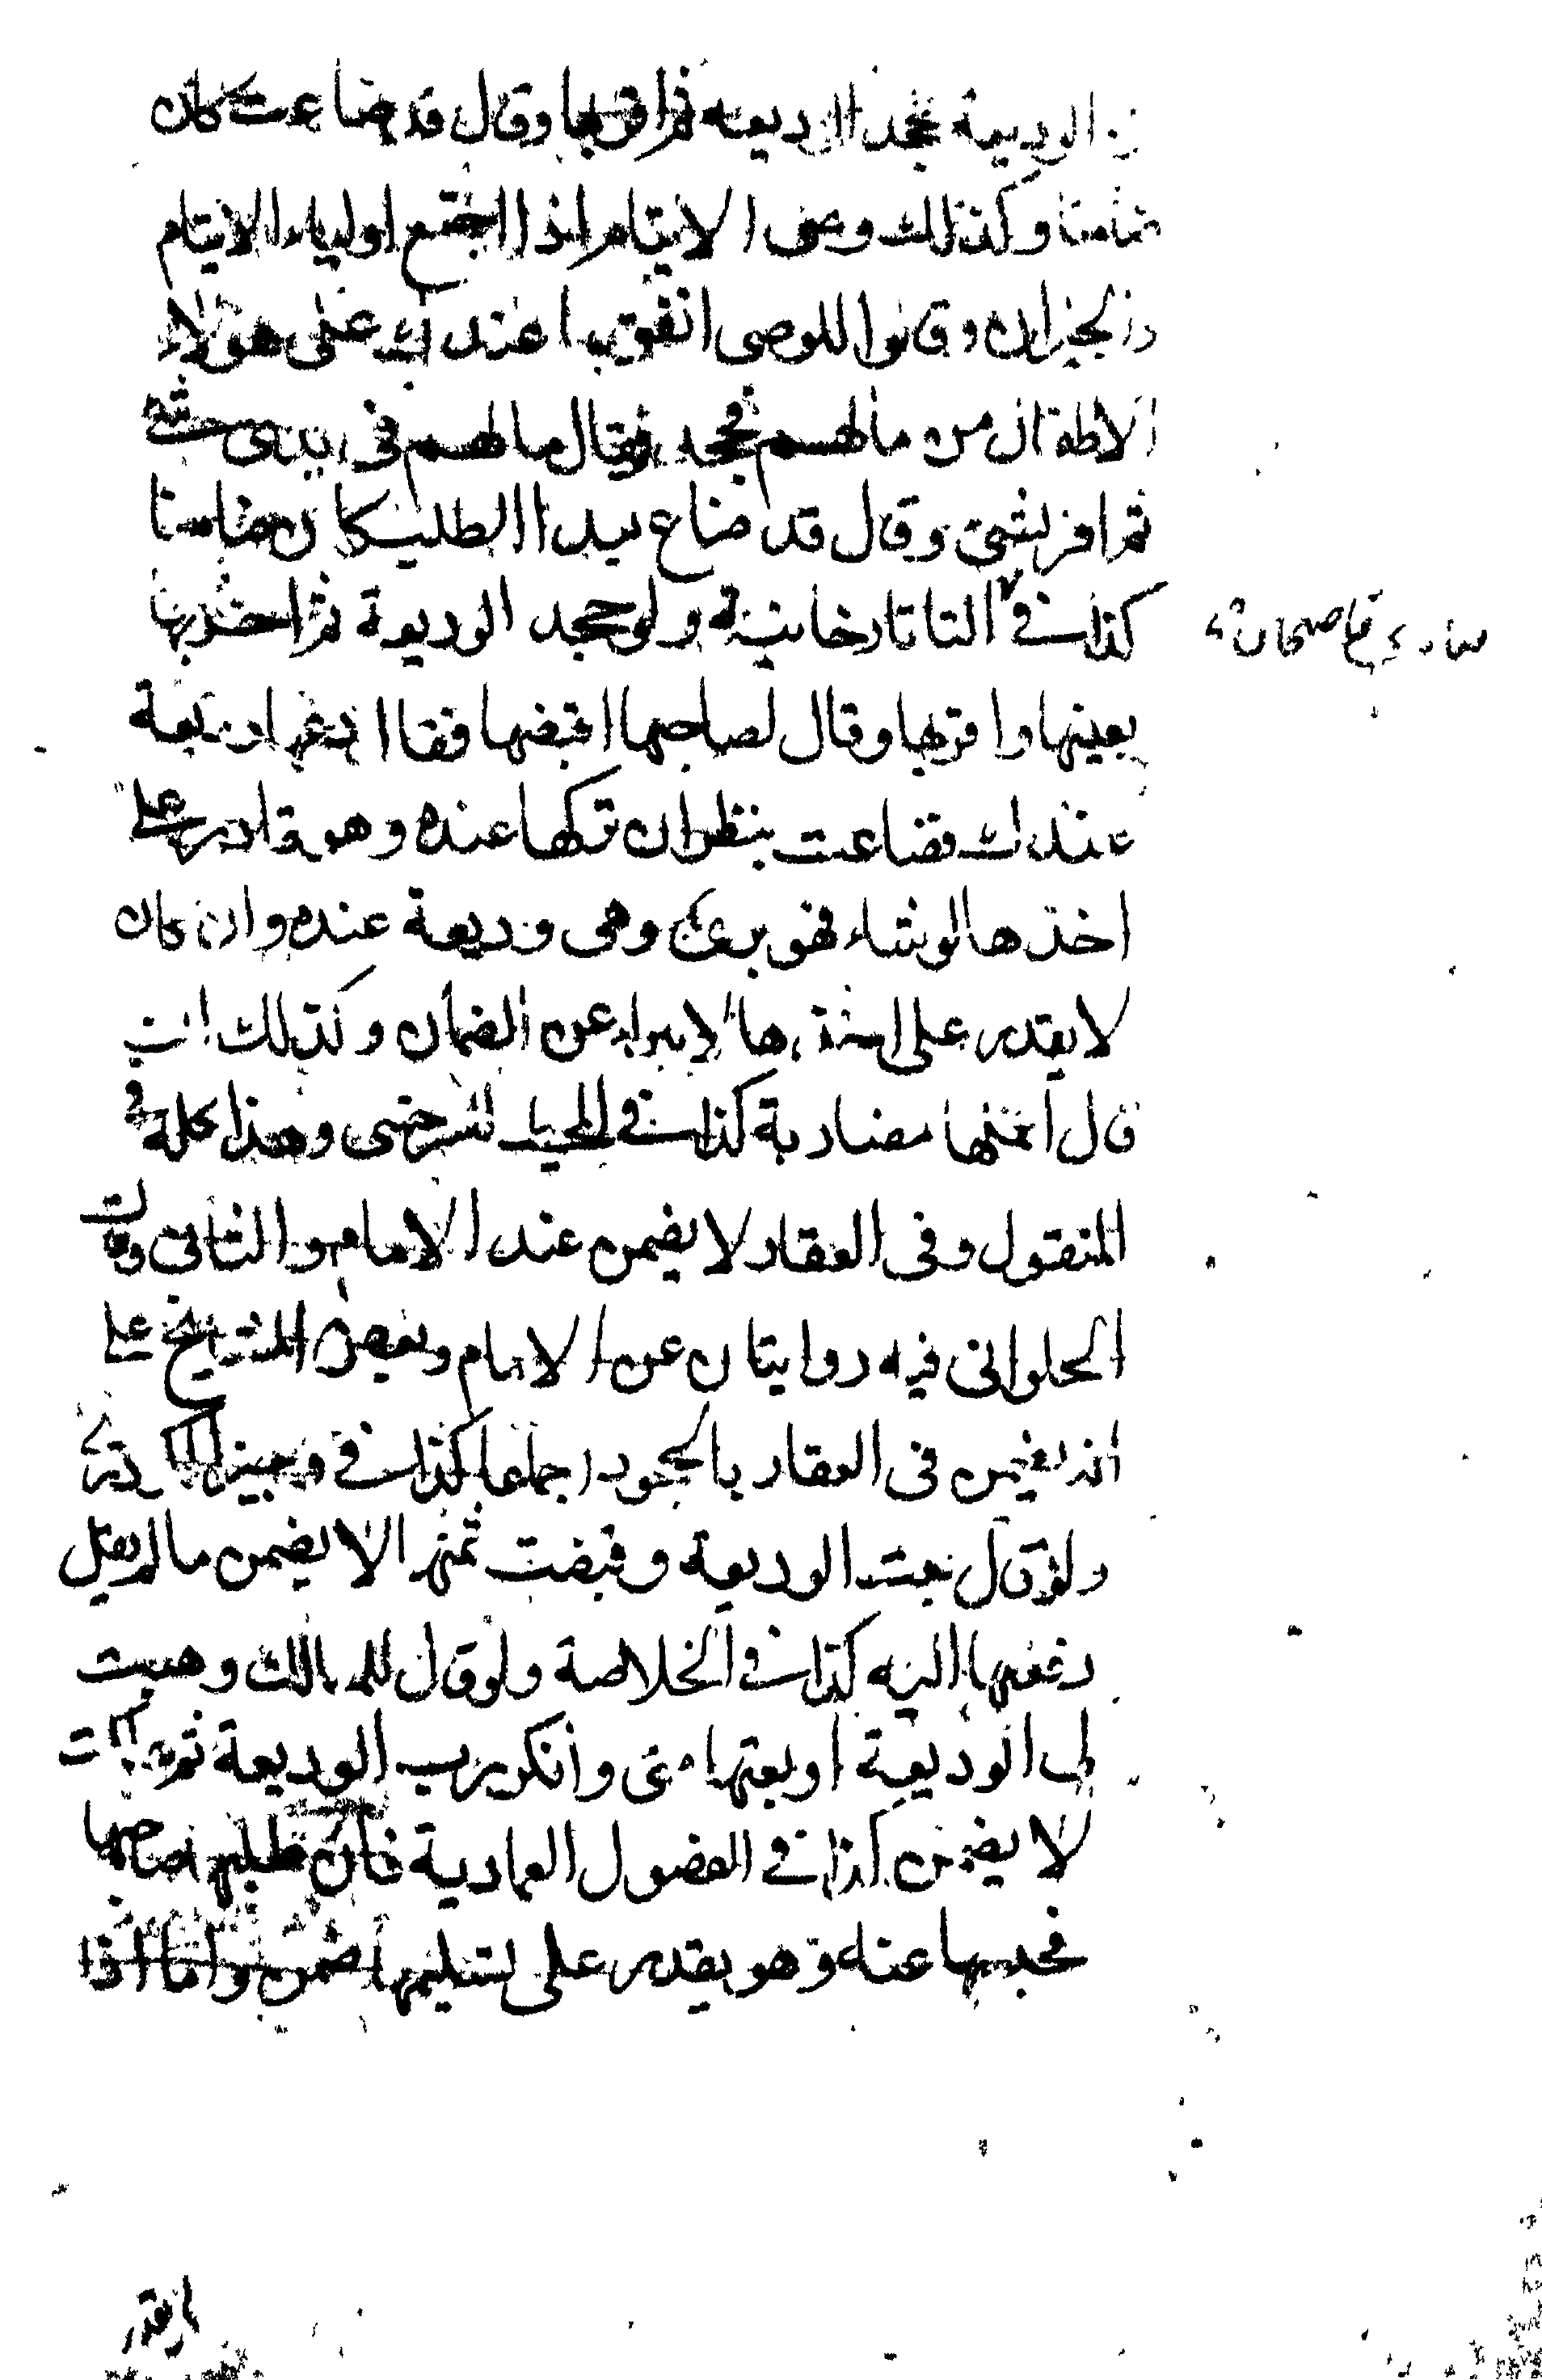 الوديعة فجحد الوديعة ثم اقر بها وقال قد ضاعت كان
ضامنا وكذلك وصى الايتام اذا اجتمع اولياء الايتام
والجيران وقالوا للوصى انفق مما عندك على هؤلاء
الاطفال من مالهم فجحد وقال مالهم فى يدى شئ
ثم اقر بشئ وقال قد ضاع بعد الطلب كان ضامنا
كذا فى التاتارخانية ولو جحد الوديعة ثم احضرها
بعينها واقر بها وقال لصاحبها اقبضها فقال دعها وديعة
عندك فضاعت ينظر ان تركها عنده وهو قادر على
اخذها لو شاء فهو برئ وهى وديعة عنده وان كان
لا يقدر على اخذها لا يبراء عن الضمان وكذلك ان
قال اعملها مضاربة كذا فى المحيط للسرخسى وهذا كله فى
المنقول وفى العقار لا يضمن عند الامام والثانى وقال
الحلوانى فيه روايتان عن الامام وبعض المشايخ على
انه يضمن فى العقار بالجحود اجماعا كذا فى وجيز الكردرى
ولو قال بعت الوديعة وقبضت ثمنها لا يضمن ما لم يقل
دفعتها اليه كذا فى الخلاصة ولو قال للمالك وهبت
لى الوديعة او بعتها منى وانكر رب الوديعة ثم هلكت
لا يضمن كذا فى الفصول العمادية فان طلبها صاحبها
فحبسها عنه وهو يقدر على تسليمها ضمن واما اذا
قاضيخان